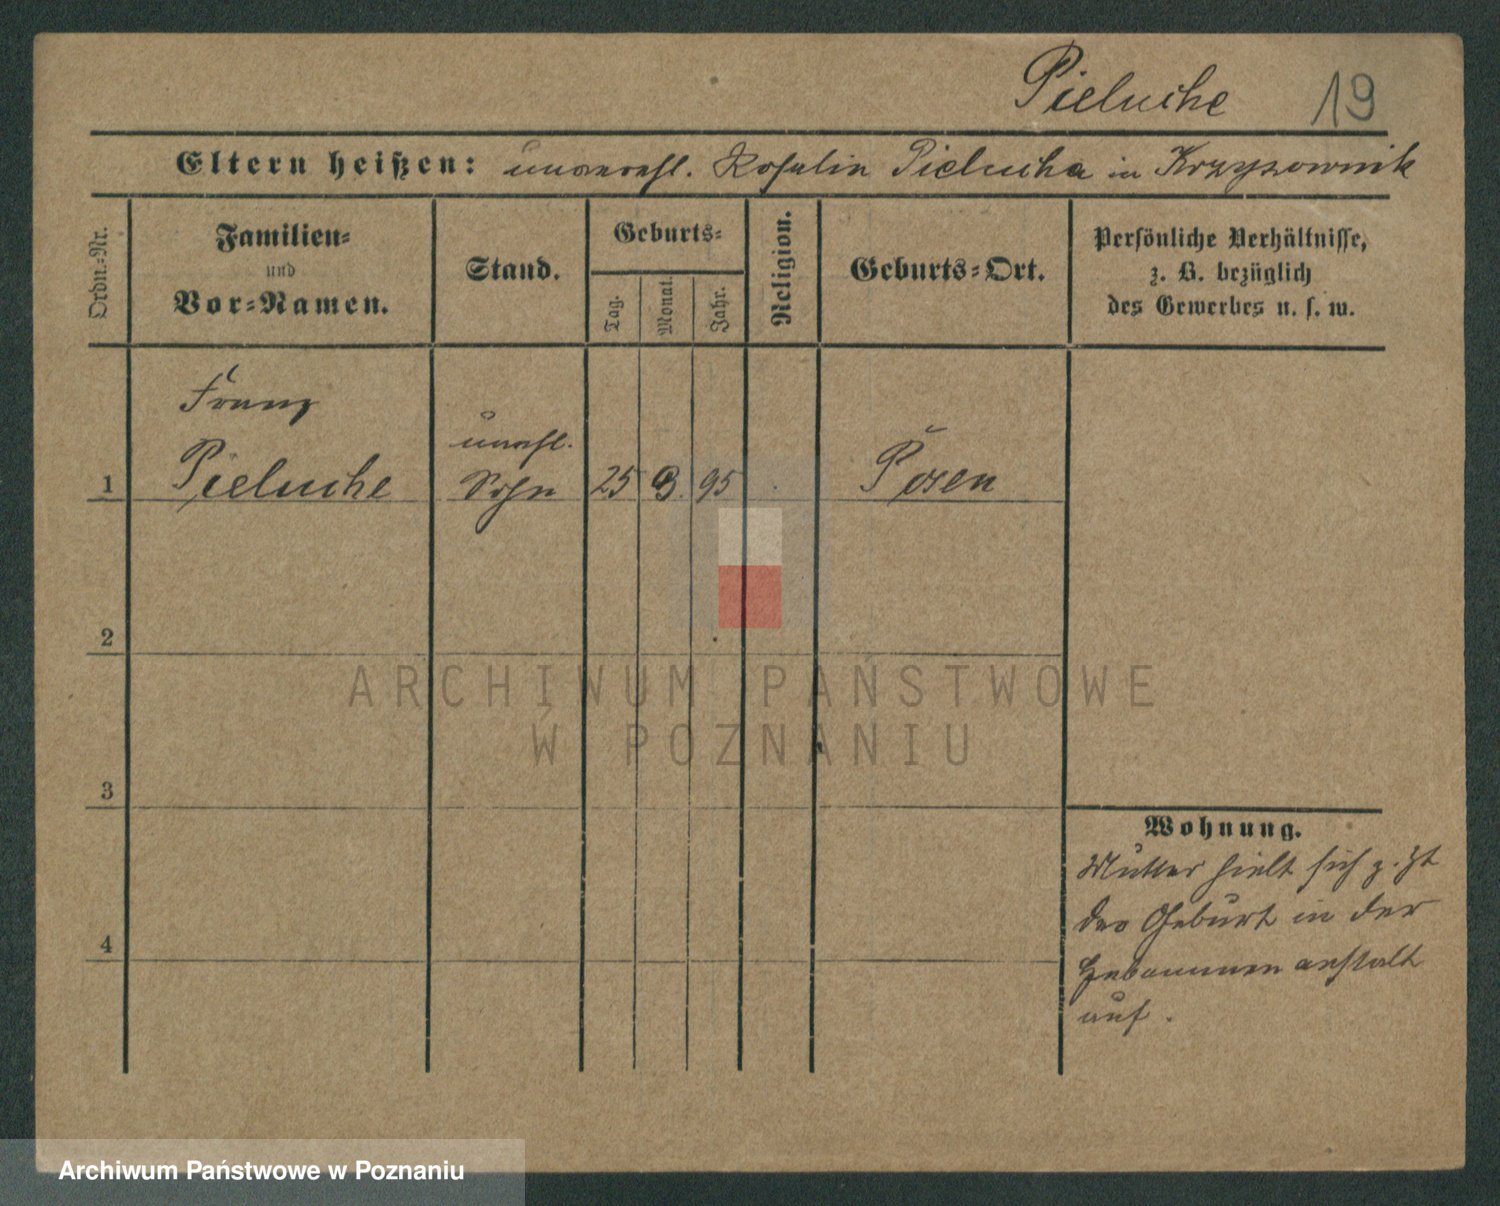 Pieluche 19
Eltern heißen: unverehl. Rosalie Pielucha in Krzyzownik
Ordn.-Nr.
Familien-
und
Vor-Namen.
Stand.
Geburts-
Tag.
Monat.
Jahr.
Religion.
Geburts-Ort.
Persönliche Verhältnisse,
z. B. bezüglich
des Gewerbes u. s. w.
Franz
unehl.
1 Pieluche Sohn 25 95 Posen
2
3
4
Wohnung.
Mutter hielt sich z. Zt
der Geburt in der
Hebammenanstalt
auf.
ARCHIWUM PAŃSTWOWE
W POZNANIU
Archiwum Państwowe w Poznaniu